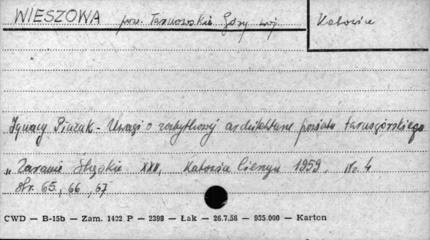 WIESZOWA pow. Tarnowskie Góry woj. Katowice
Ignacy Płazak - Uwagi o zabytkowej architekturze powiatu tarnogórskiego
"Zaranie Śląskie XXII, Katowice Cieszyn 1959, nr. 4
Str. 65, 66, 67
CWD — B-15b — Zam. 1422 P — 2398 — Łak — 26.7.56 — 935.000 — Karton